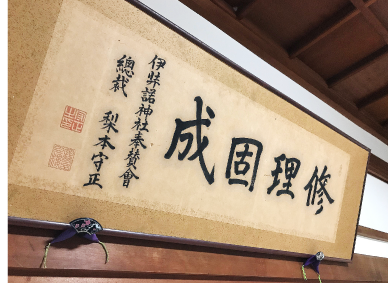 修理固成
伊弉諾神社奉賛會
總裁 梨本守正